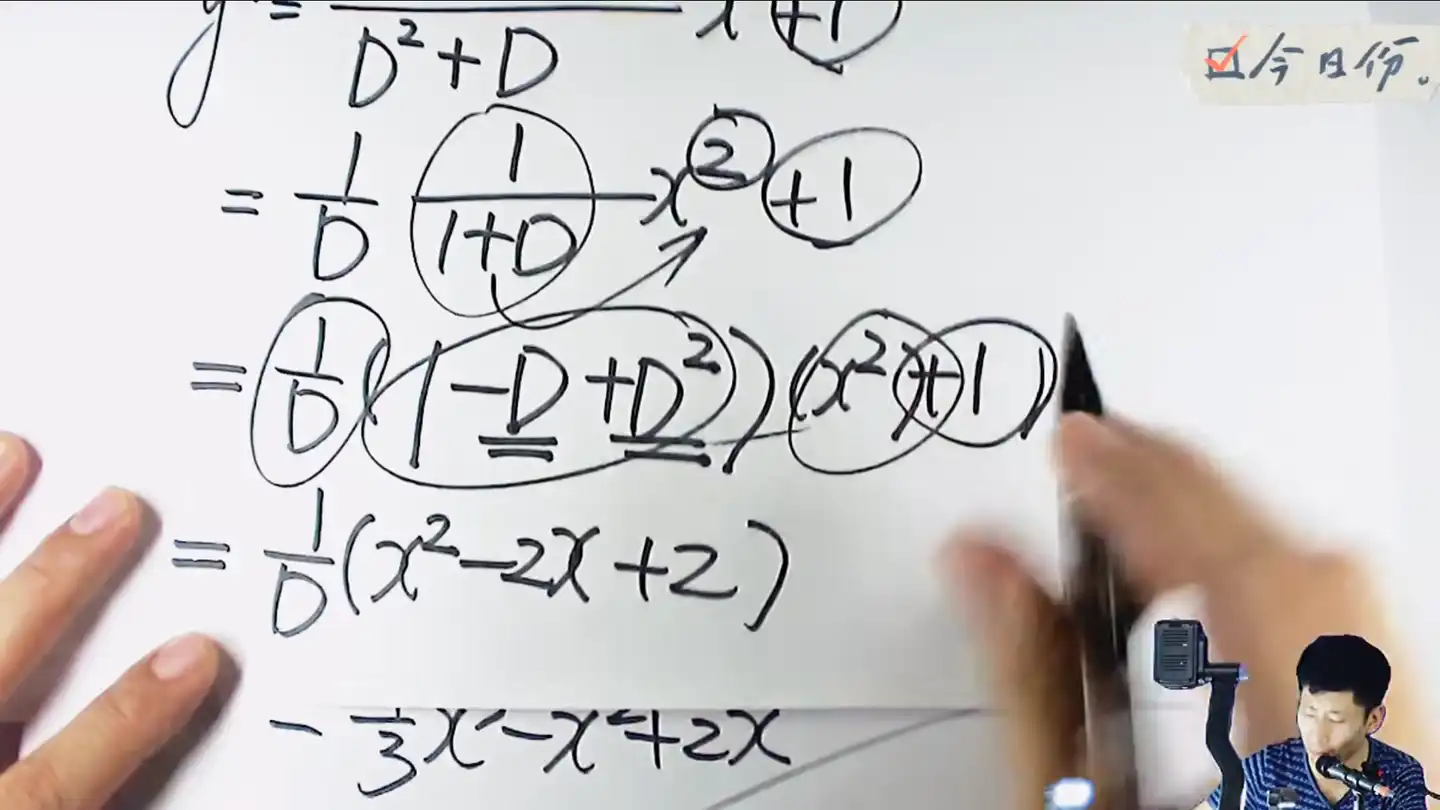 y* = 1/(D²+D) x² +1
☑今日份。
= 1/D 1/(1+D) x² +1
= 1/D (1-D+D²)(x²)+1)
= 1/D (x²-2x+2)
= 1/3 x³-x²+2x